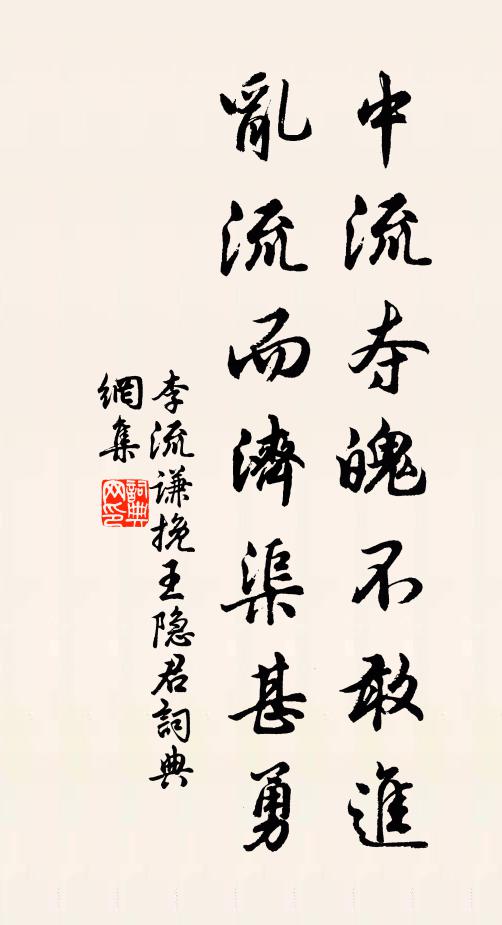 中流夺魄不敢進
亂流而濟渠甚勇
李流谦挽王隐君詞典
網集
詞典網印